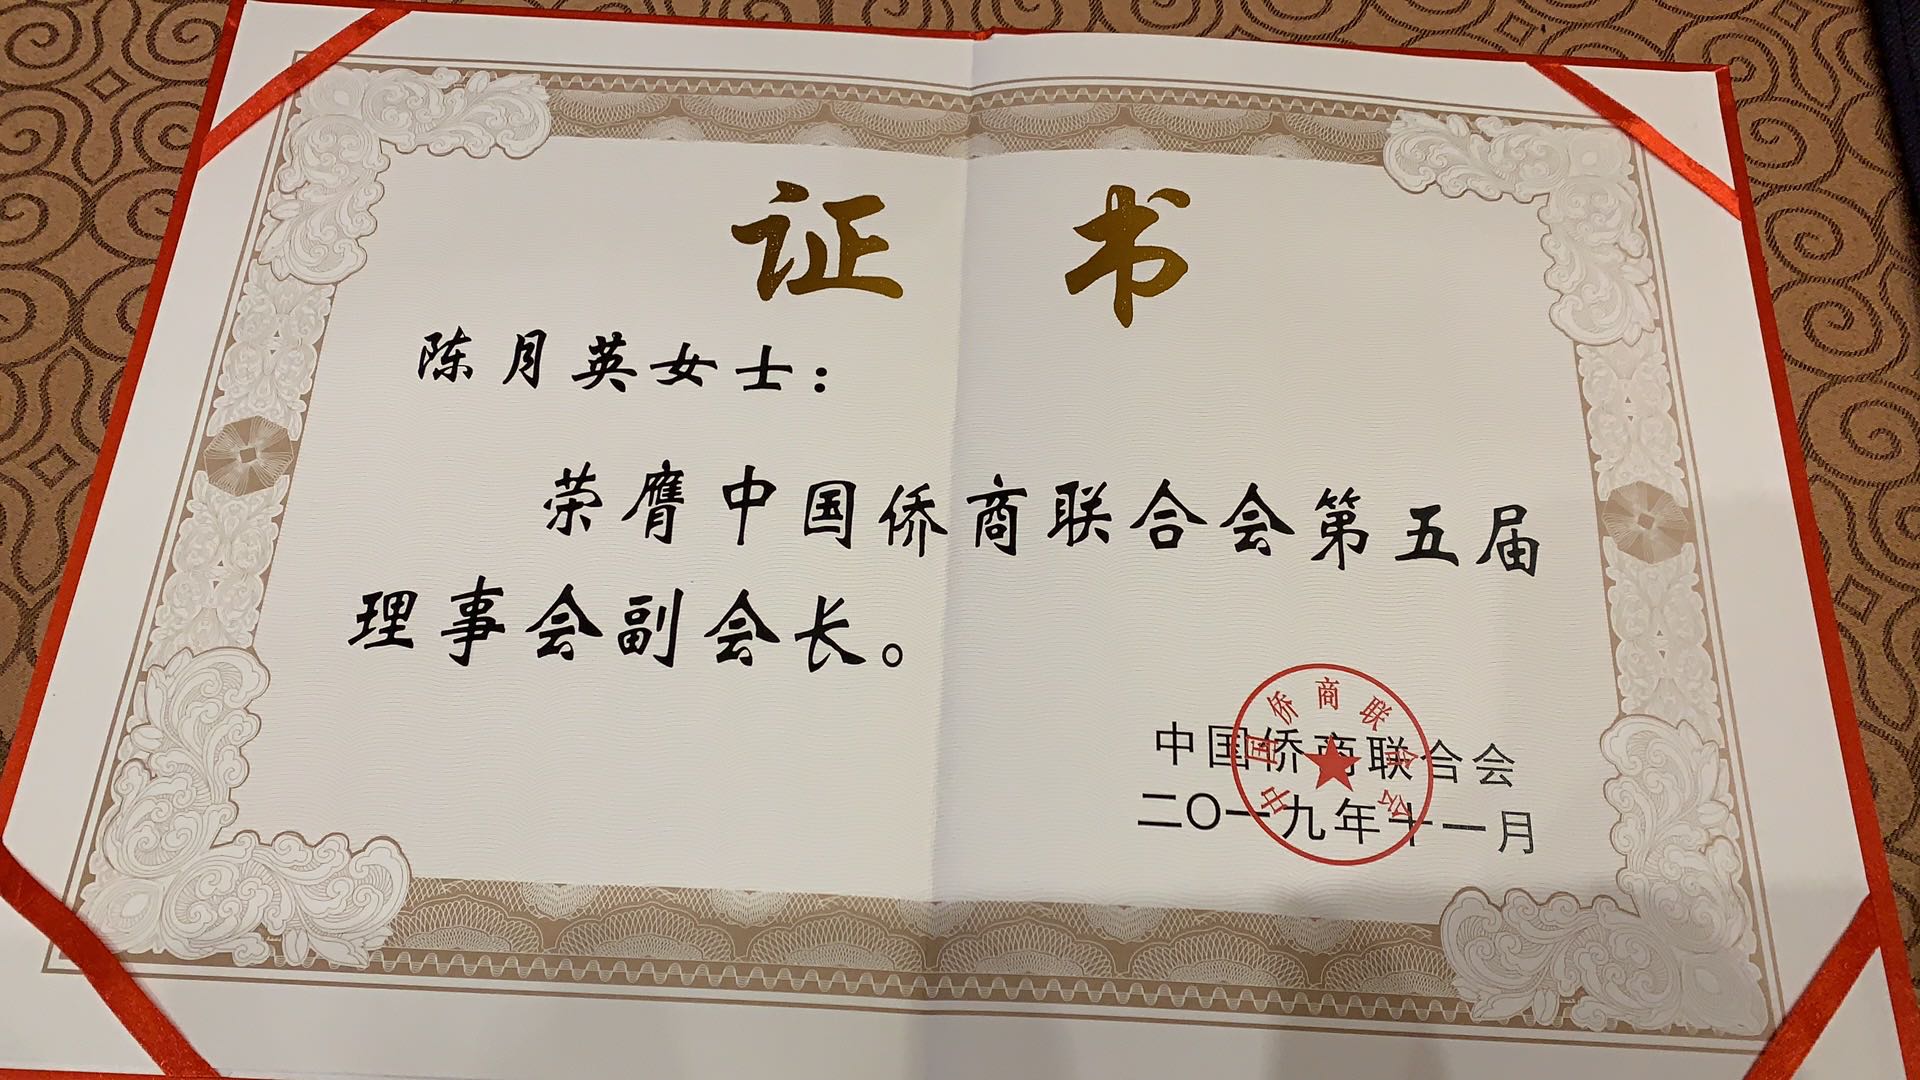 证书
陈月英女士：
荣膺中国侨商联合会第五届
理事会副会长。
中国侨商联合会
二〇一九年十一月
中国侨商联合会